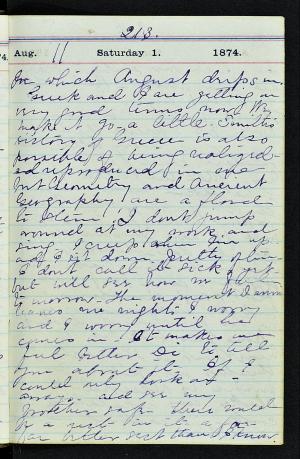 213.
Aug. 11 Saturday 1. 1874.
which August drips in
Greek and I are getting on
very good terms now. We
make it go a little. Smith's
history of Greece is also
possible of being realized
and reproduced in me
but Geometry and Ancient
Geography are a
to I don't jump
around at my work and
sing. I creep when I'm up
and I sit down pretty often
I don't call it sick yet
but will see how
to morrow. The moment
leaves me nights I worry
and I worry until he
comes in. It makes me
feel better Dr to tell
you about it. If I
could only look at
and see my
there would
be a rest in it a
far better rest than I know